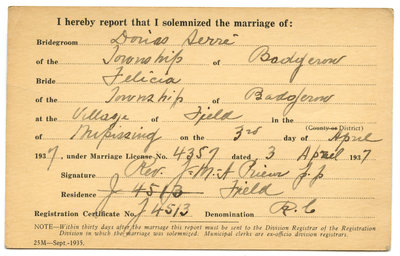 I hereby report that I solemnized the marriage of:
Bridegroom Donias Serré
of the Township of Badgerow
Bride Felicia
of the Township of Badgerow
at the Village of Field in the
(County or District)
of Nipissing on the 3rd day of April
1937, under Marriage License No. 4357 dated 3 April 1937
Signature Rev. J-M-A Prieur p.p
Residence J 4513 Field
Registration Certificate No. J 4513 Denomination R.C
NOTE—Within thirty days after this marriage this report must be sent to the Division Registrar of the Registration
Division in which the marriage was solemnized. Municipal clerks are ex-officio division registrars.
25M—Sept.-1935.